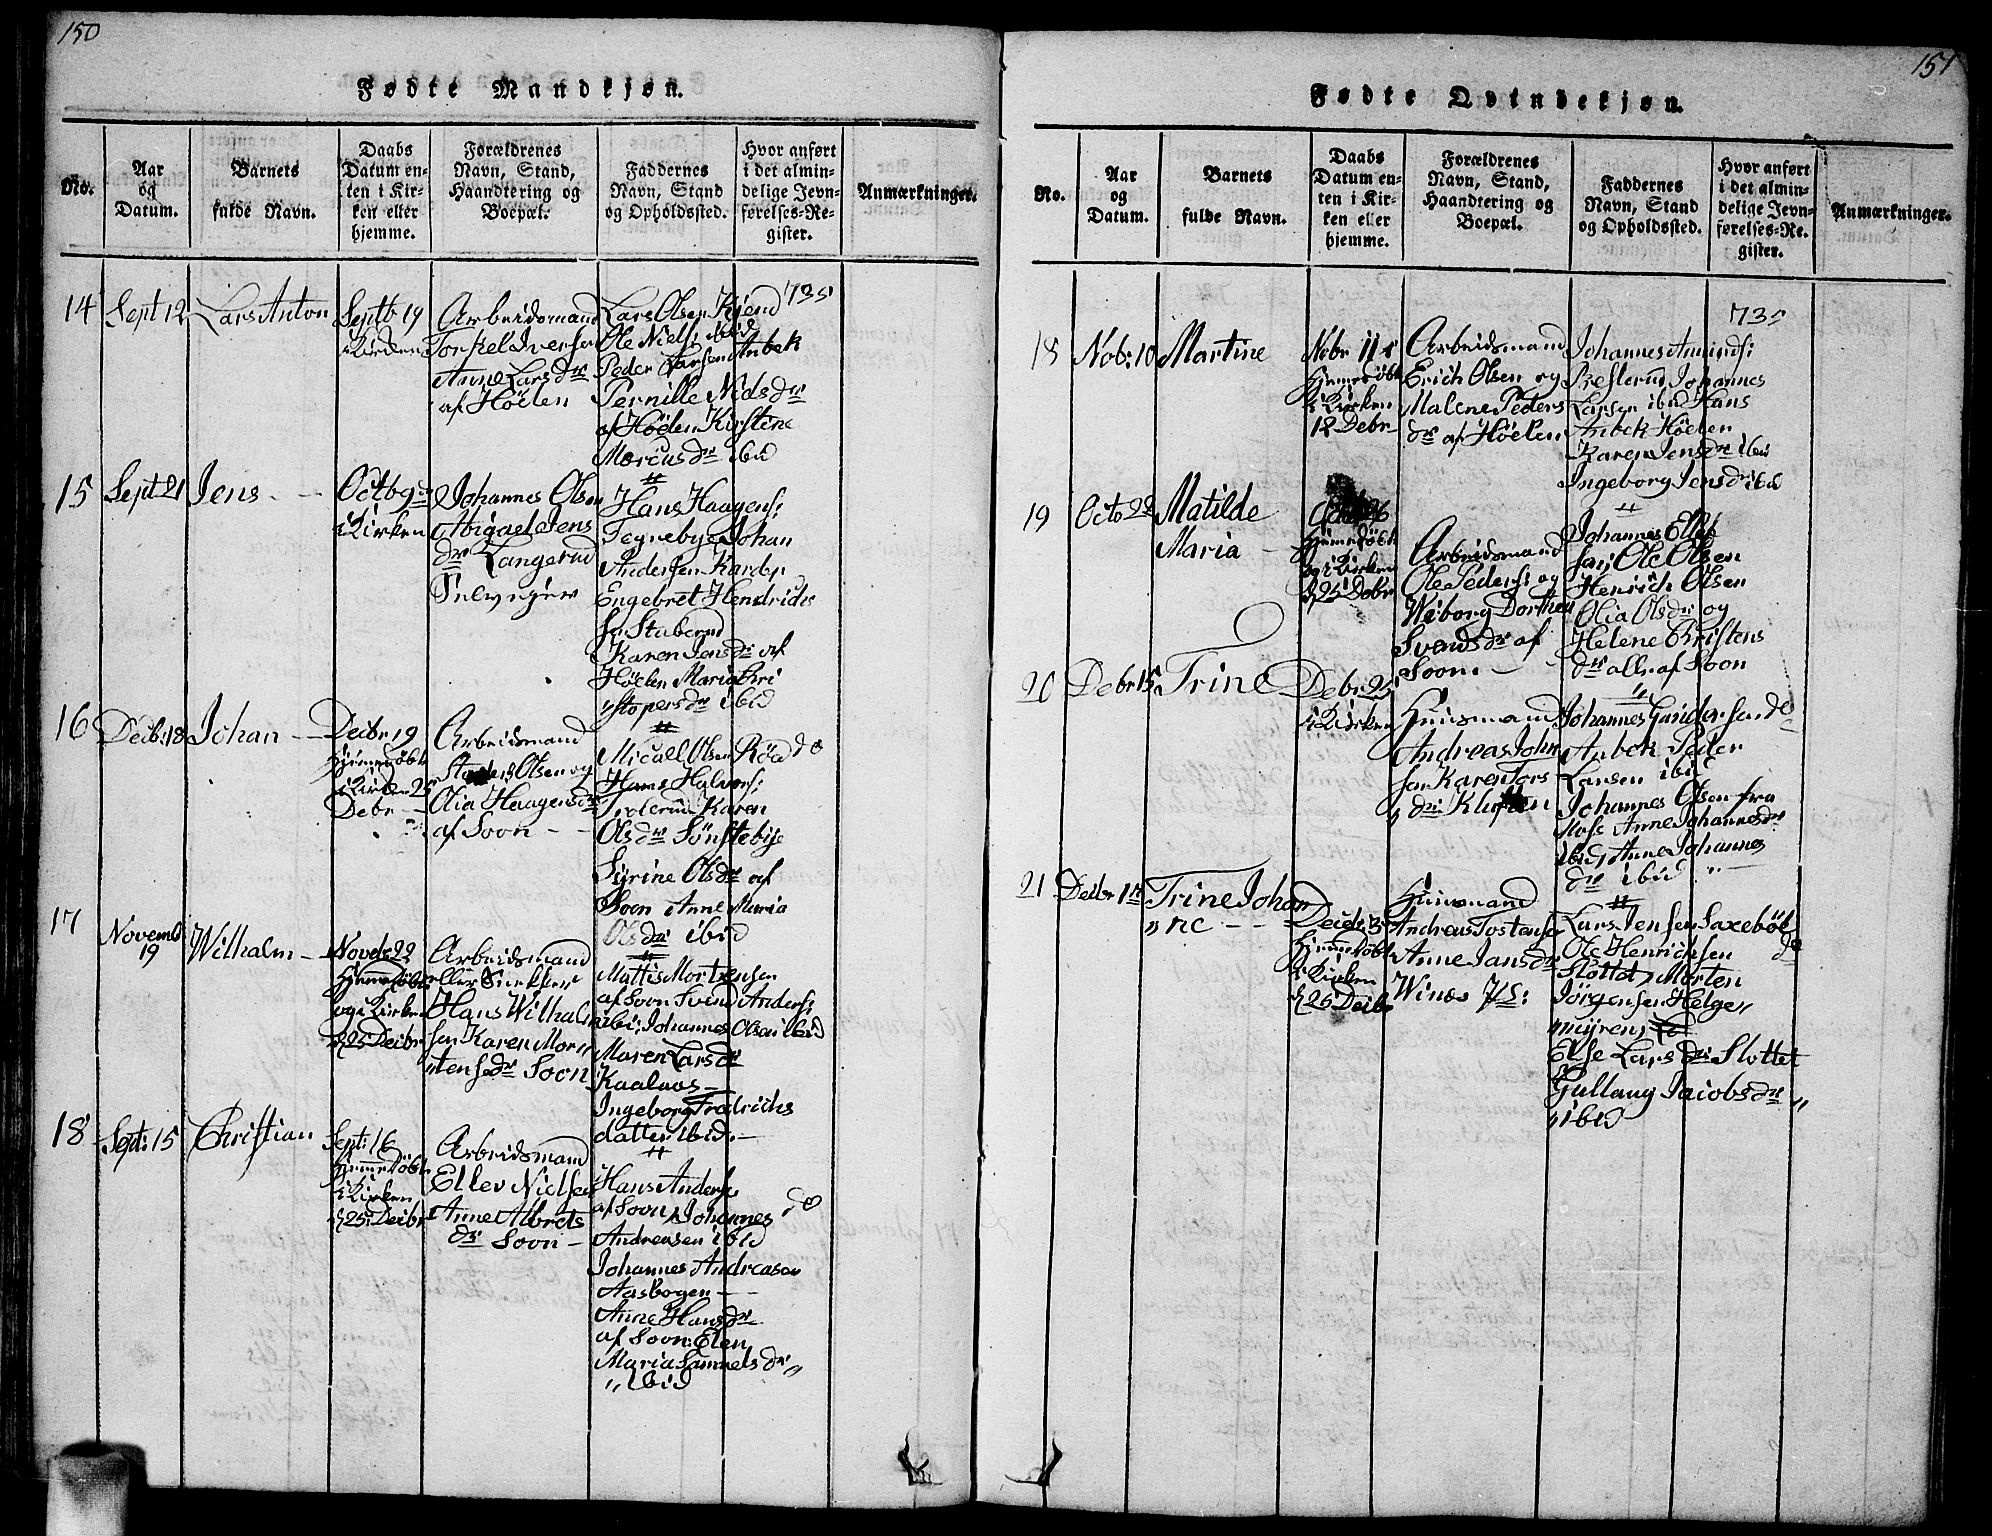 150
Fødte Mandkjøn.
No.
Aar
og
Datum.
Barnets
fulde Navn.
Daabs
Datum en-
ten i Kir-
ken eller
hjemme.
Forældrenes
Navn, Stand,
Haandtering og
Boepæl.
Faddernes
Navn, Stand
og Opholdssted.
Hvor anført
i det almin-
delige Jevn-
førelses-Re-
gister.
Anmærkninger.
14
Sept 12
Lars Anton
Septb 19
i Kirken
Arbeidsmand
Torkel Iversen
Anne Lars dr
af Höelen
Lars Olsen Kjend
Ole Niels: ibid
Peder Larsen Anbek
Pernille Nids dr
af Höelen Kirstine
Marcus dr ibid
735
15
Sept 21
Jens
Octb 9
i Kirken
Johannes Olsen
Abigael Jens
dr Langerud
Selveyer
Hans Haagens:
Tegnebye Johan
Andersen Kardby
Engebret Hendrichs
Sø Stuberud
Karen Jens dr af
Höelen Maria Chri
stopers dr ibid
16
Decb: 18
Johan
Decbr 19
Hiemedöbt
i Kirken 25
Debr
Arbeidsmand
Olsen og
Olia Haagensdr
af Soon
Micall Olsen Röed
Hans Halvors:
Karen
Olsdr Sönstebye
Sirine Olsdr af
Soon Anne Maria
Olsdr ibid
do
17
Novemb
19
Wilhalm
Novbr 22
Hiemedöbt
og i Kirken
d 25 Decbr
Arbeidsmand
eller
Hans Wilhalm
sen Karen Mor
tensdr Soon
Mattis Mortensen
af Soon Svend Anders:
ibi: Johannes Olsen ibid
Maren Lars dr
Kaalaas
Ingeborg Fredrichs
datter ibid.
18
Sept: 15
Christian
Sept: 16
Hiemedöbt
i Kirken
d 25: Decbr
Arbeidsmand
Ellev Nielsen
Anne Albrets
dr Soon
Hans Anders
af Soon, Johannes
Andreasen ibid
Johannes Andreasen
Aasbogen
Anne Hans dr
af Soon: Elen
Maria Samuels dr
ibid
do
151
Fødte Qvindekjøn.
No.
Aar
og
Datum.
Barnets
fulde Navn.
Daabs
Datum en-
ten i Kir-
ken eller
hjemme.
Forældrenes
Navn, Stand,
Haandtering og
Boepæl.
Faddernes
Navn, Stand
og Opholdssted.
Hvor anført
i det almin-
delige Jevn-
førelses-Re-
gister.
Anmærkninger.
18
Nob: 10
Martine
Nobr 11
Hiemedöbt
i Kirken
12 Debr
Arbeidsmand
Erich Olsen og
Malene Peders
dr af Höelen
Johannes Amunds:
Presterud Johannes
Larsen ibid Hans
Anbek Höelen
Karen Jensdr ibid
Ingeborg Jensdr ibid
735
19
Octo 22
Matilde
Maria
Hiemedöbt
og i Kirken
d 25 Debr
Arbeidsmand
Ole Peders: og
Wiborg Dorthea
Svends dr af
Soon
Johannes Ellef
sen Ole Olsen
Henrich Olsen
Olia Olsdr og
Helene Christens
dr alle af Soon
20
Debr 15
Trine
Debr 25
i Kirken
Huusmand
Andreas John
sen Karen Tors
dr: Kluften
Johannes Gundersen
Anbek Peder
Larsen ibid
Johannes Olsen fra
Moss Anne Johannesdr
ibid, Anne Johannes
dr ibid
do
21
Decbr 1
Trine Johan
ne
Decbr 3
Hiemedöbt
i Kirken
d 26 Decbr
Huusmand
Andreas Tostensen
Anne Jansdr
Lars Jensen Saxeböl
Ole Henrichsen
Slottet, Morten
Jörgensen Helge
myren
Else Lars dr Slottet
Gullaug Jacobsdr
ibid
do